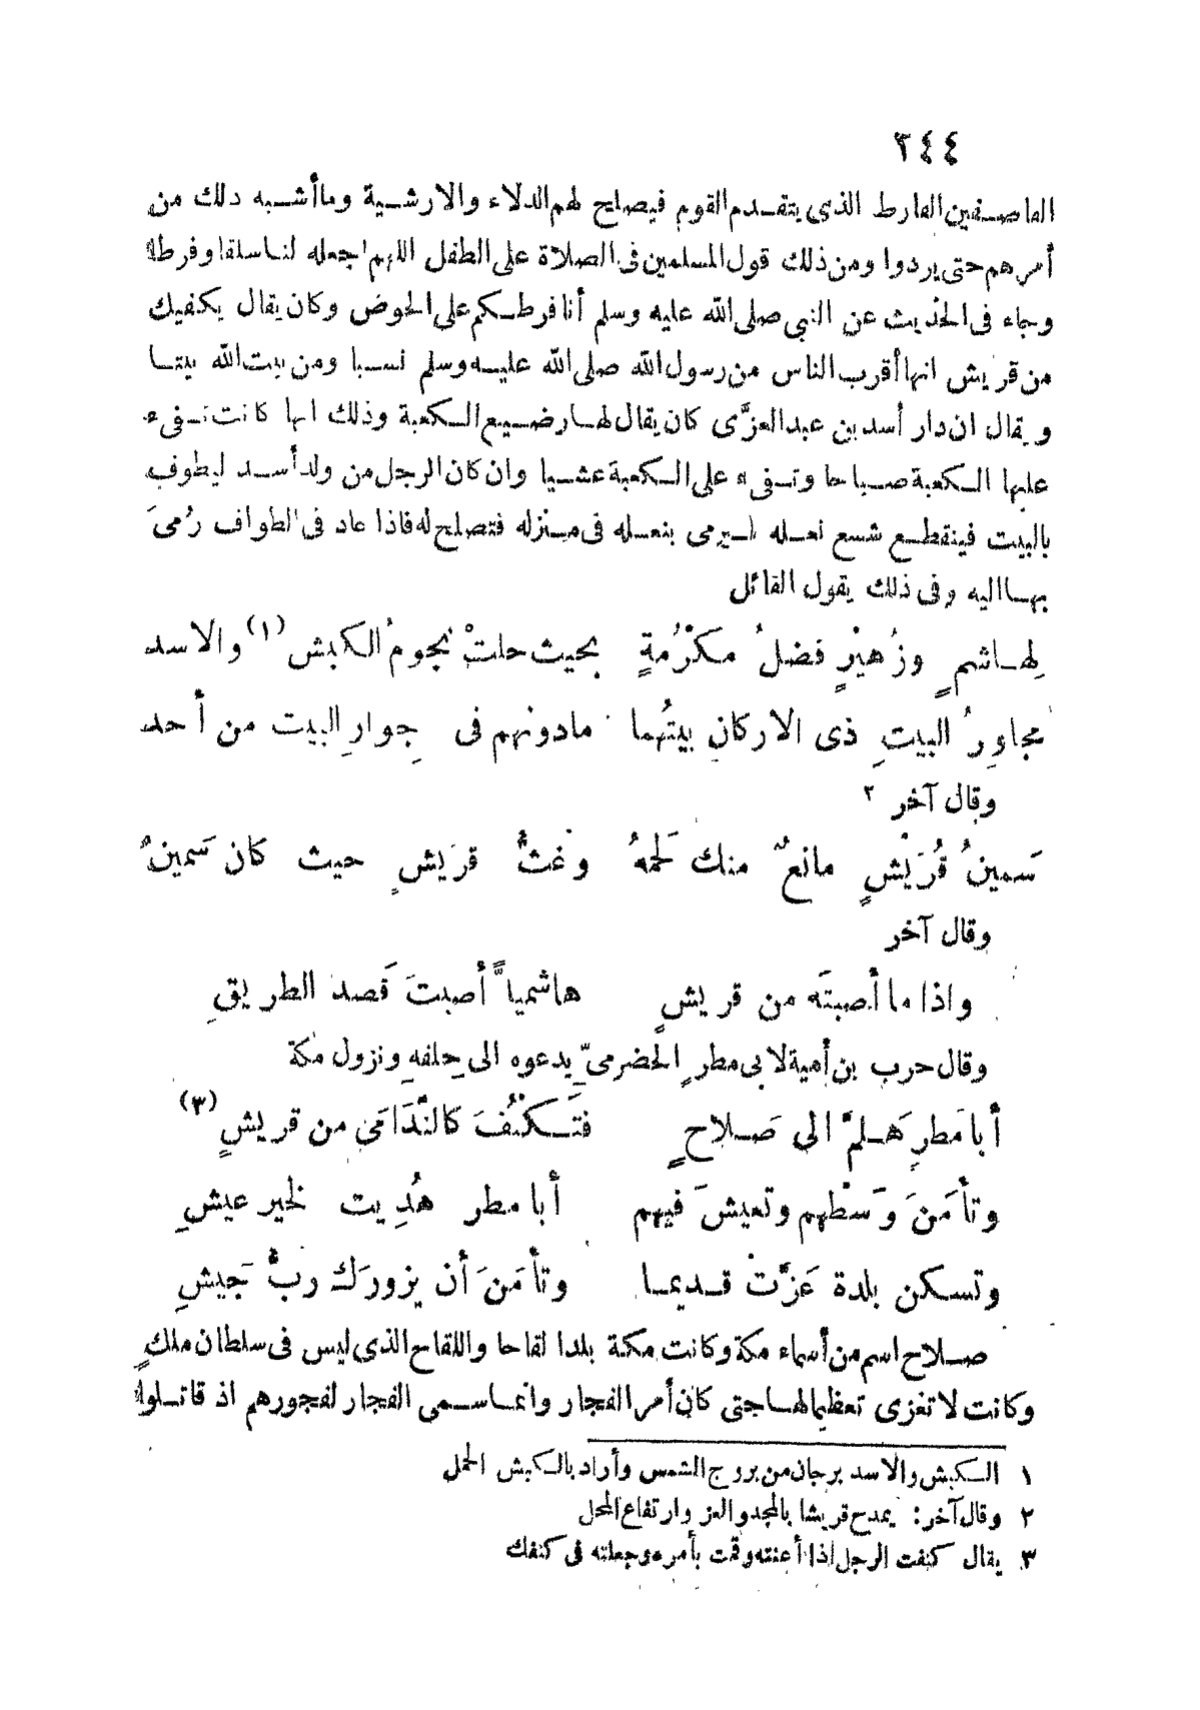 ٢٤٤
القاصفين الفارط الذى يتقدم القوم فيصلح لهم الدلاء والارشية وما أشبه ذلك من
أمرهم حتى يردوا ومن ذلك قول المسلمين فى الصلاة على الطفل اللهم اجعله لنا سلفا وفرطا
وجاء فى الحديث عن النبى صلى الله عليه وسلم أنا فرطكم على الحوض وكان يقال يكفيك
من قريش انها أقرب الناس من رسول الله صلى الله عليه وسلم نسبا ومن بيت الله بيتا
ويقال ان دار أسد بن عبد العزَّى كان يقال لها رضيع الكعبة وذلك انها كانت تفىء
عليها الكعبة صباحا وتفىء على الكعبة عشيا وان كان الرجل من ولد أسد ليطوف
بالبيت فينقطع شسع نعله فيرمى بنعله فى منزله فتصلح له فاذا عاد فى الطواف رُمىَ
بها اليه وفى ذلك يقول القائل
لِهاشمٍ وزُهيْرٍ فضلُ مكرُمةٍ بحيث حلتْ نجومُ الكبش (١) والاسد
مجاوِرُ البيتِ ذى الاركانِ بيتُهما مادونهم فى جِوارِ البيت من أحد
وقال آخر ٢
سَمينُ قُرَيْشٍ مانعٌ منك لَحمهُ وغثُّ قريشٍ حيث كان سَمينُ
وقال آخر
واذا ما أصبتَه من قريشٍ هاشمياًّ أصبتَ قَصد الطريقِ
وقال حرب بن أمية لابى مطرٍ الحضرمىِّ يدعوه الى حِلفهِ ونزول مكة
أبا مَطرٍ هَلمَّ الى صَلاحٍ فتَكنُفَ كالنَّدَامَى من قريشٍ (٣)
وتأمَنَ وَسْطهم وتعيشَ فيهم أبا مطر هُدِيت لخير عيشِ
وتسكن بلدة عَزَّتْ قديما وتأمَنَ أن يزورَك ربُّ جَيشِ
صلاح اسم من أسماء مكة وكانت مكة بلدا لقاحا واللقاح الذى ليس فى سلطان ملكٍ
وكانت لا تغزى تعظيما لها حتى كان أمر الفجار وانما سمى الفجار لفجورهم اذ قاتلوا
١ الكبش والاسد برجان من بروج الشمس وأراد بالكبش الحمل
٢ وقال آخر: يمدح قريشا بالمجد والعز وارتفاع المحل
٣ يقال كنفت الرجل اذا أعنته وقمت بأمره وجعلته فى كنفك